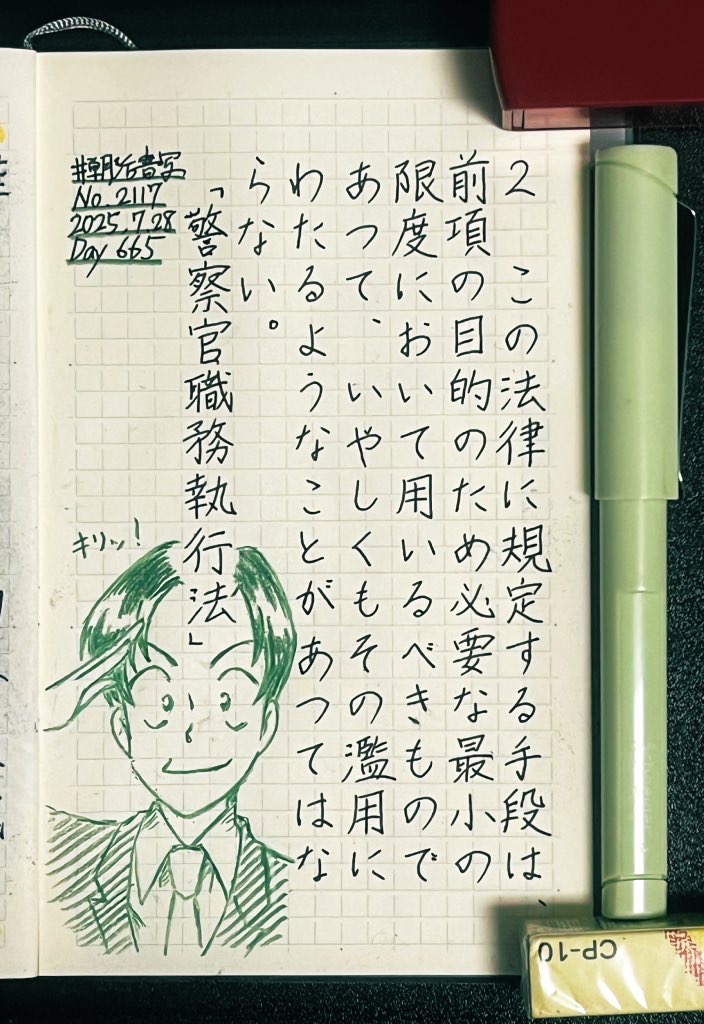 2　この法律に規定する手段は、
前項の目的のため必要な最小の
限度において用いるべきもので
あつて、いやしくもその濫用に
わたるようなことがあつてはな
らない。
「警察官職務執行法」
#朝活書写
No. 2117
2025.7.28
Day 665
キリッ!
CP-10